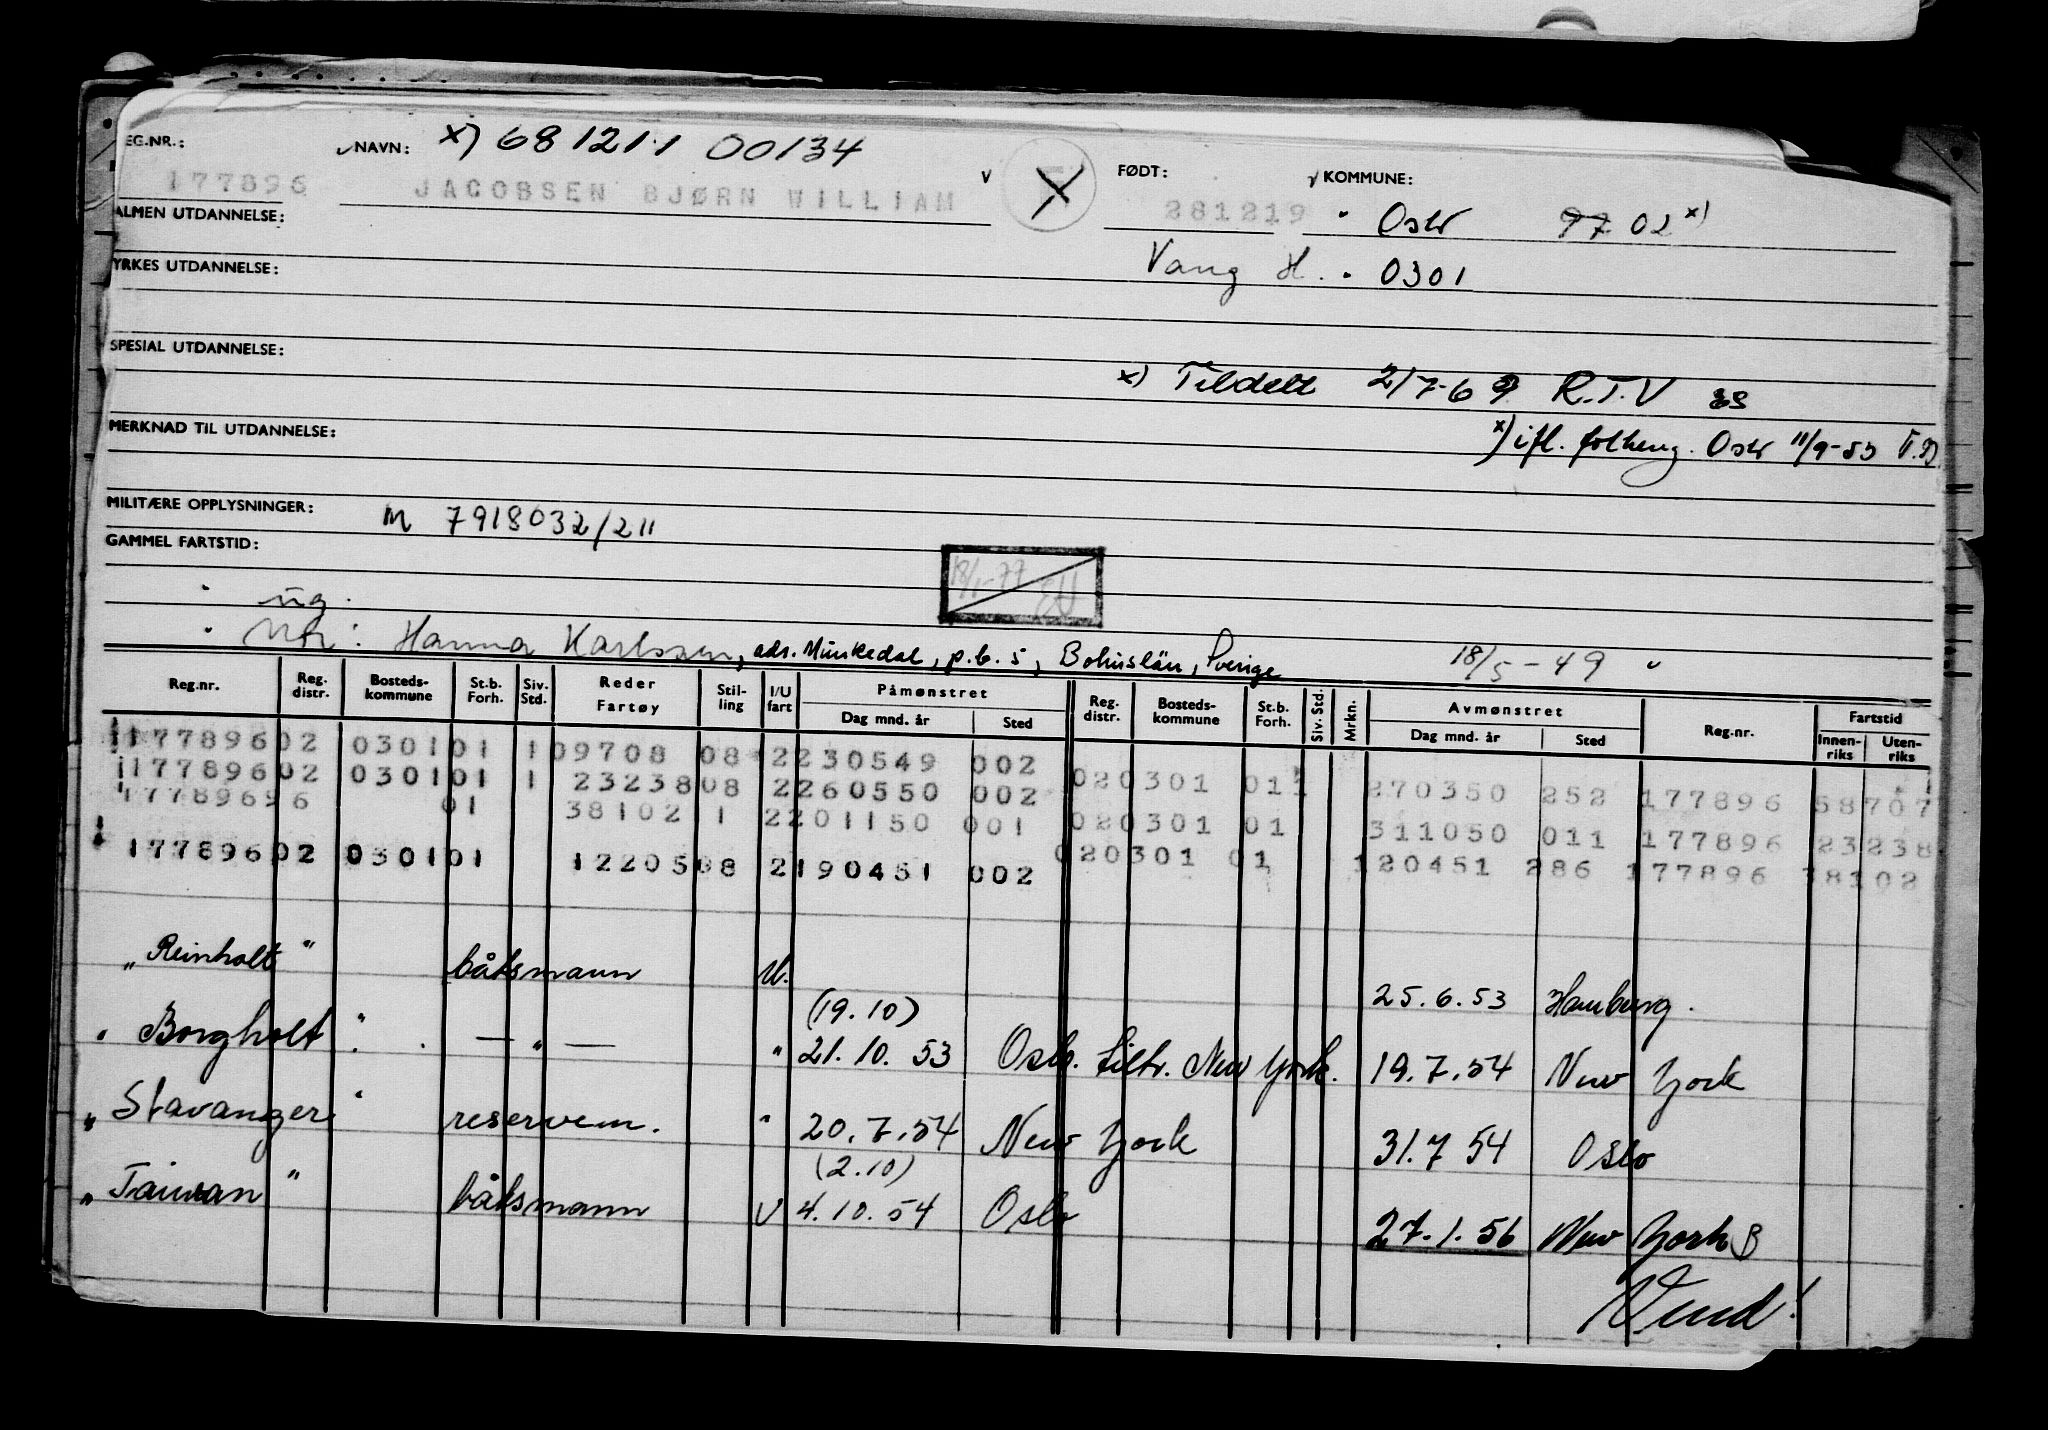 EG.NR.: NAVN: x) 681211 00134 FØDT: KOMMUNE:
177896 JACOBSEN BJØRN WILLIAM 281219 Oslo 97 02 x)
ALMEN UTDANNELSE:
Vang H. 0301
YRKES UTDANNELSE:
SPESIAL UTDANNELSE:
x) Tildelt 2/7-69 R.T.V
MERKNAD TIL UTDANNELSE:
x) ifl. folkereg. Oslo 11/9-53
MILITÆRE OPPLYSNINGER: M 7918032/211
GAMMEL FARTSTID:
18/1-77
ug.
Mor: Hanna Karlsson, adr. Munkedal, p.b. 5, Bohuslän, Sverige 18/5-49
Reg.nr. Reg. distr. Bosteds-kommune St.b. Forh. Siv. Std. Reder Fartøy Stil-ling I/U fart Påmønstret Dag mnd. år Sted Reg. distr. Bosteds-kommune St.b. Forh. Siv. Std. Mrkn. Avmønstret Dag mnd. år Sted Reg.nr. Fartstid Innen-riks Uten-riks
177896 02 0301 01 1 09708 08 2 230549 002
177896 02 0301 01 1 23238 08 2 260550 002 02 0301 01 270350 252 177896 58707
177896 96 01 38102 11 2 201150 001 02 0301 01 311050 011 177896 23238
177896 02 0301 01 12205 08 2 190451 002 02 0301 01 120451 286 177896 38102
"Reinholt" båtsmann U. 25.6.53 Hamburg.
(19.10)
"Borgholt" — " — " 21.10.53 Oslo. tiltr. New York. 19.7.54 New York
"Stavanger" reservem. " 20.7.54 New York 31.7 54 Oslo
(2.10)
"Taiwan" båtsmann U 4.10.54 Oslo 27.1.56 New York B
Vend!